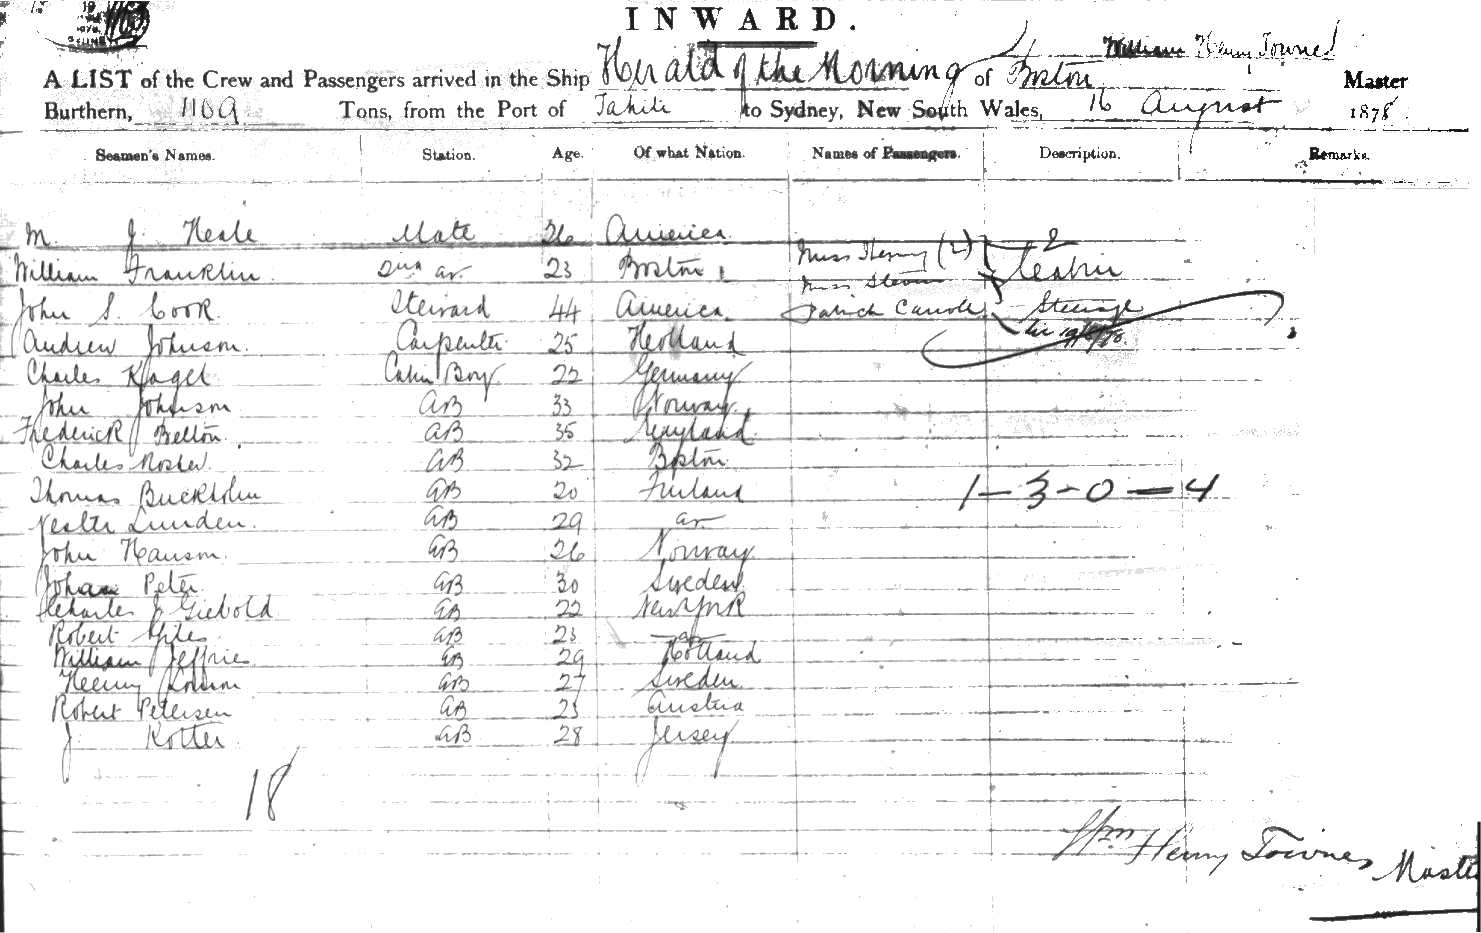 INWARD.
William Henry Townes
A LIST of the Crew and Passengers arrived in the Ship Herald of the Morning of Boston Master
Burthern, 1109 Tons, from the Port of Tahiti to Sydney, New South Wales, 16 August 1878
Seamen's Names. Station. Age. Of what Nation. Names of Passengers. Description. Remarks.
M. J. Neale Mate 26 America 2
William Franklin 2nd do 23 Boston Miss Henry (2) Cabin
Miss
John S. Cook Steward 44 America Patrick Carroll Steerage
Andrew Johnson Carpenter 25 Holland
Charles Kagel Cabin Boy 22 Germany
John Johnson AB 33 Norway
Frederick Belton AB 35
Charles Mosher AB 32 Boston
Thomas Buckholm AB 20 Finland 1-3-0-4
Lunden AB 29 do
John Hanson AB 26 Norway
Johan Peter AB 30 Sweden
Charles J Giebold AB 22 New York
Robert Giles AB 23 do
William Jeffrie AB 29 Holland
Henry AB 27 Sweden
Robert Petersen AB 23 Austria
J Kotter AB 28 Jersey
18
Wm Henry Townes Master